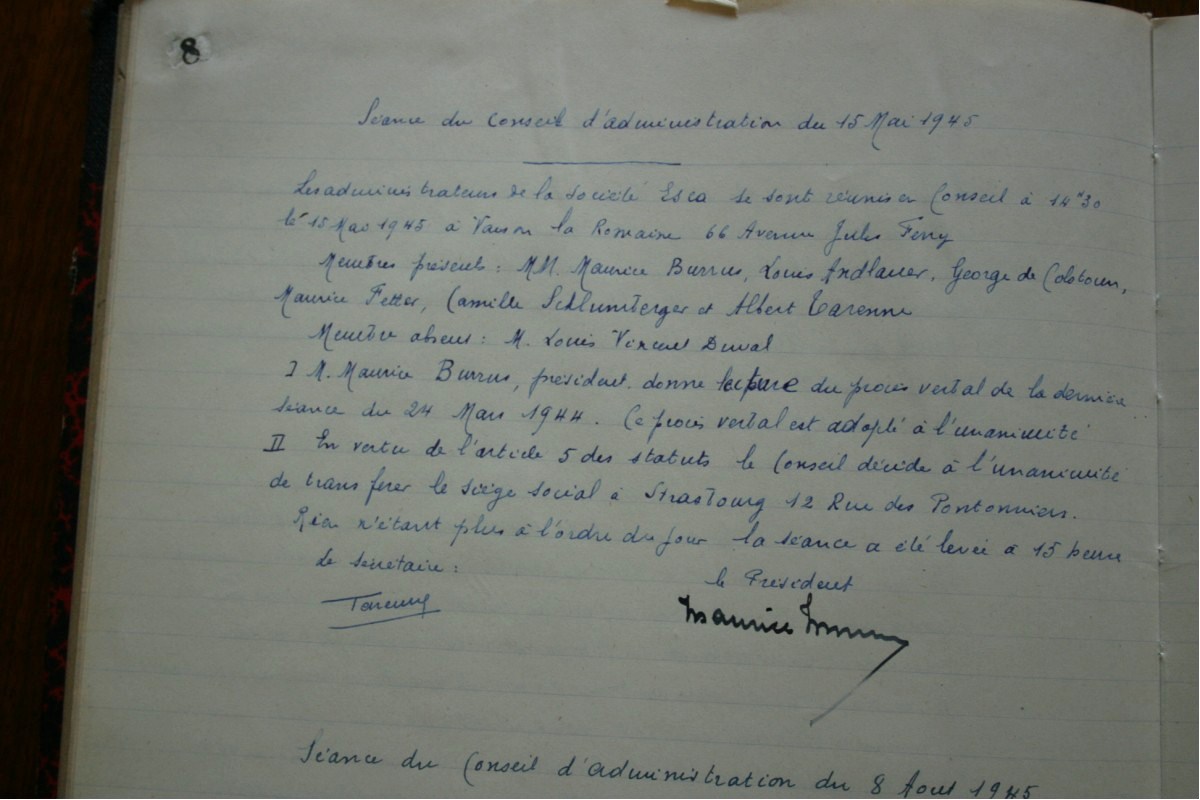 8
Séance du Conseil d'administration du 15 Mai 1945
Les administrateurs de la société Esca se sont réunis en Conseil à 14h30
le 15 Mai 1945 à Vaison la Romaine 66 Avenue Jules Ferry
Membres présents : MM. Maurice Burrus, Louis Andlauer, George de
Maurice Fetter, Camille Schlumberger et Albert Tarenne
Membre absent : M. Louis Vincent Duval
I M. Maurice Burrus, président donne lecture du procès verbal de la dernière
séance du 24 Mars 1944. Ce procès verbal est adopté à l'unanimité
II En vertu de l'article 5 des statuts le Conseil décide à l'unanimité
de transférer le siège social à Strasbourg 12 Rue des Pontonniers.
Rien n'étant plus à l'ordre du jour la séance a été levée à 15 heure
le secrétaire :
le Président
Tarenne
Maurice Burrus
Séance du Conseil d'administration du 8 Aout 1945